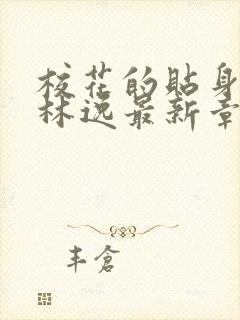 校花的貼身
林逸最新章
丰倉